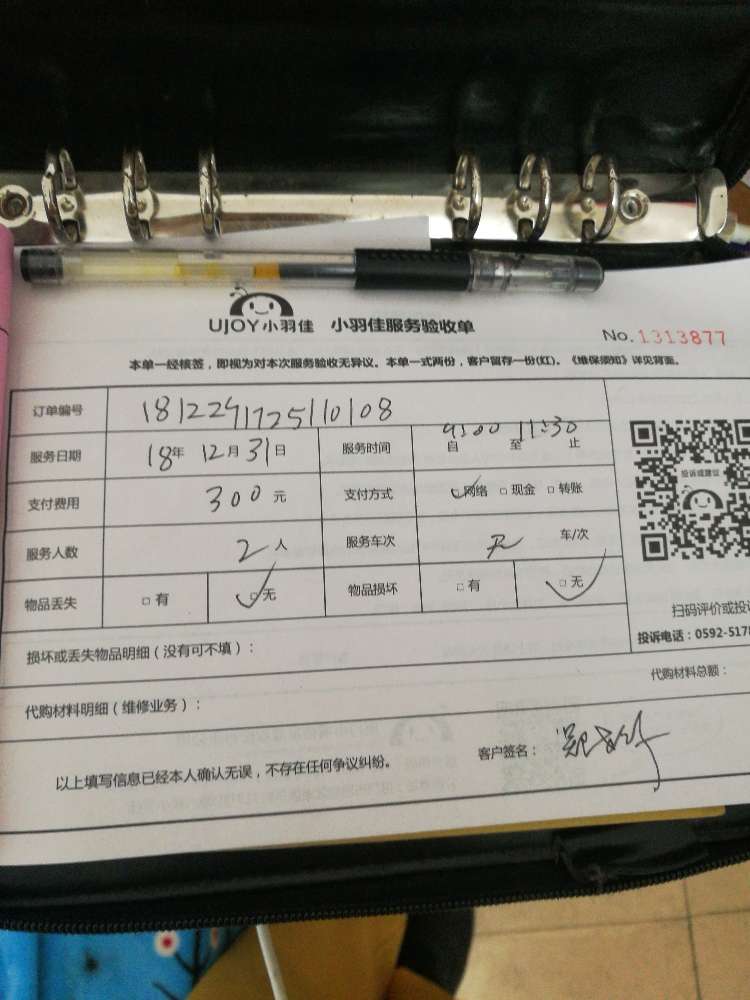 UJOY小羽佳 小羽佳服务验收单
No. 1313877
本单一经核签，即视为对本次服务验收无异议。本单一式两份，客户留存一份(红)。《维保须知》详见背面。
订单编号 1812291725110108
服务日期 18年 12月 31日 服务时间 9:00 自 至 11:30 止
支付费用 300 元 支付方式 ☑网络 □现金 □转账
服务人数 2人 服务车次 无 车/次
物品丢失 □有 ☑无 物品损坏 □有 ☑无
投诉或建议
扫码评价或投诉
投诉电话：0592-5178
损坏或丢失物品明细（没有可不填）：
代购材料明细（维修业务）： 代购材料总额：
以上填写信息已经本人确认无误，不存在任何争议纠纷。 客户签名：